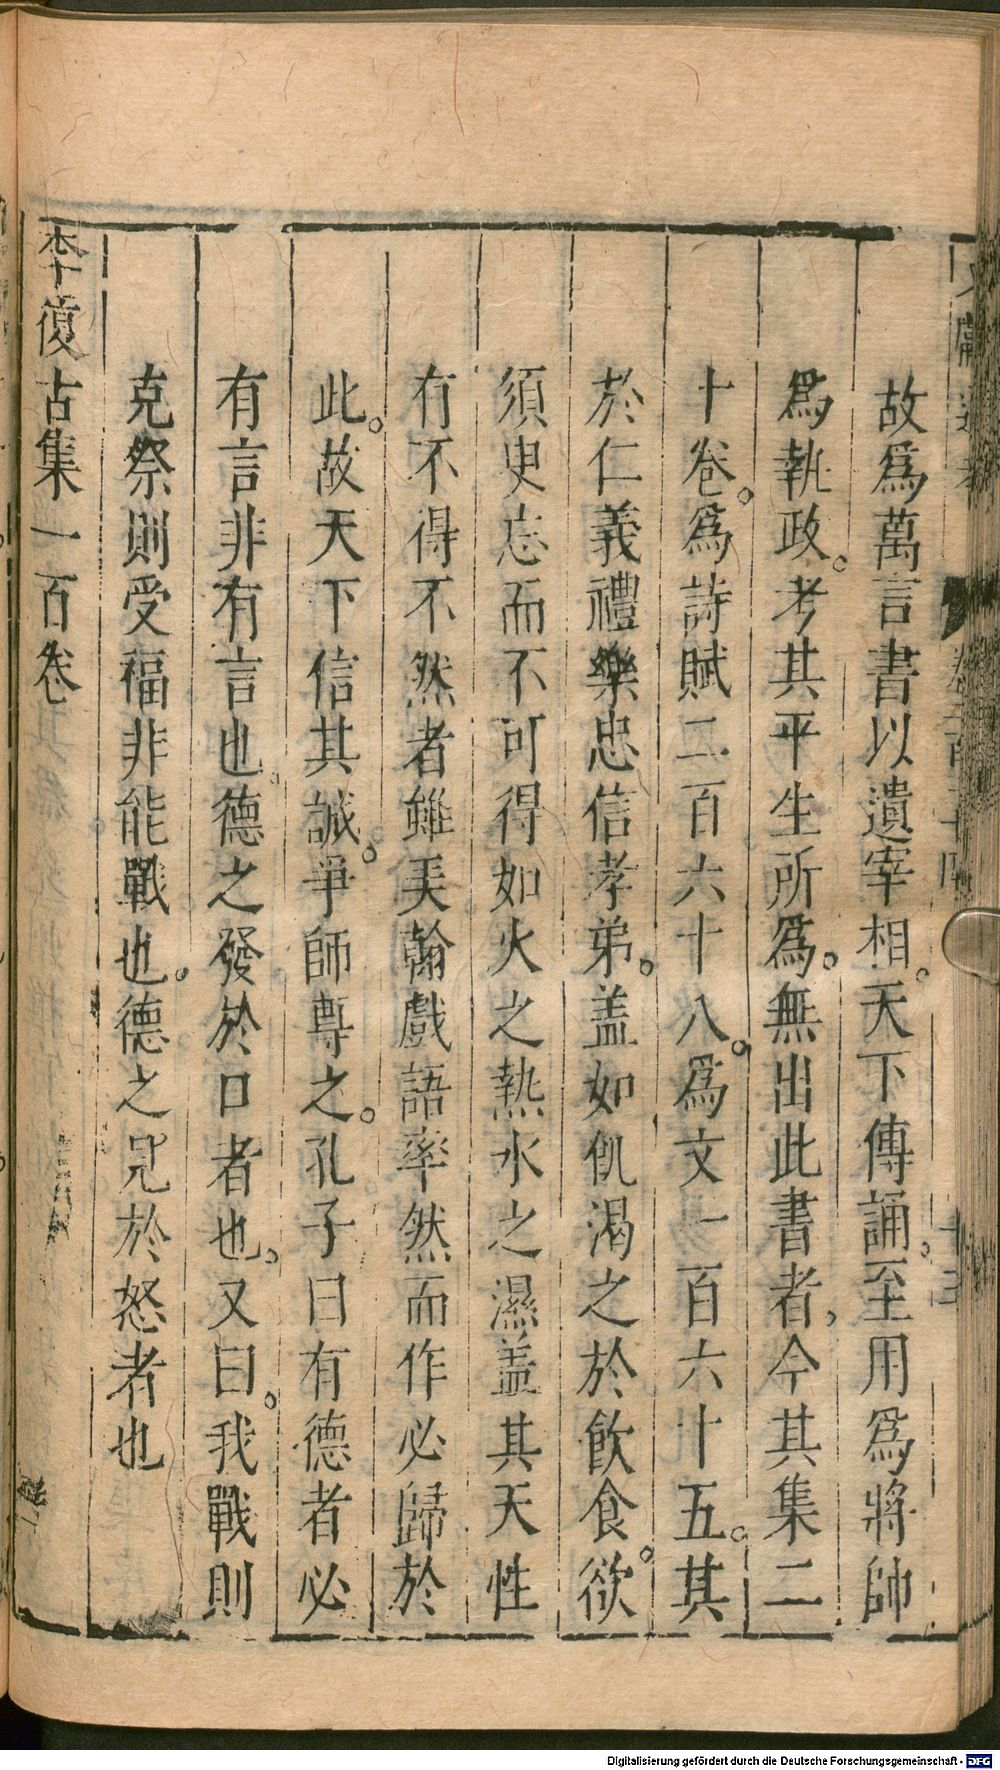 故爲萬言書以遺宰相。天下傳誦。至用爲將帥
爲執政。考其平生所爲。無出此書者，今其集二
十卷。爲詩賦二百六十八。爲文一百六十五。其
於仁義禮樂忠信孝弟。盖如飢渴之於飲食。欲
須臾忘而不可得如火之熱水之濕盖其天性
有不得不然者雖美翰戲語率然而作必歸於
此。故天下信其誠。爭師尊之。孔子曰有德者必
有言非有言也。德之發於口者也。又曰。我戰則
克祭則受福非能戰也。德之見於怒者也
李復古集一百卷
Digitalisierung gefördert durch die Deutsche Forschungsgemeinschaft - DFG